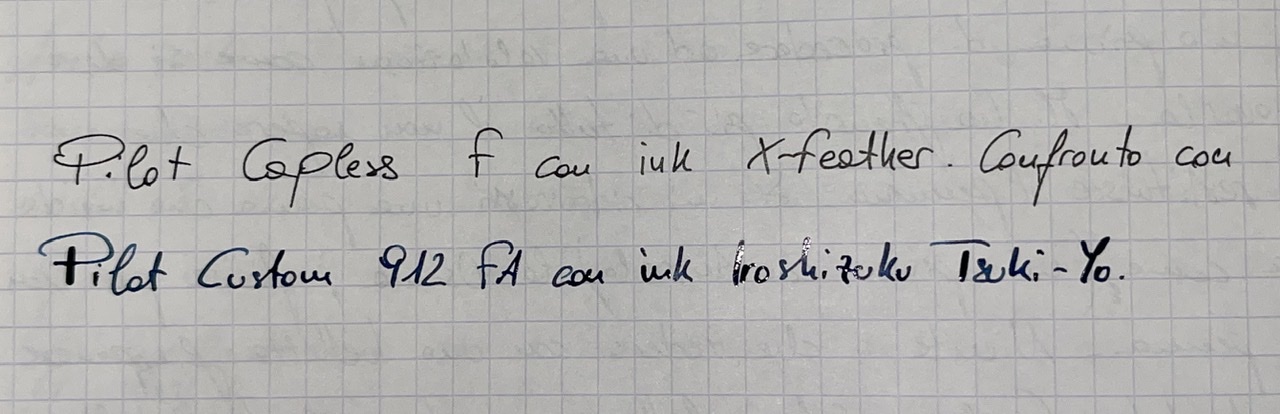 Pilot Capless f con ink X-feather. Confronto con
Pilot Custom 912 FA con ink Iroshizuku Tsuki-Yo.